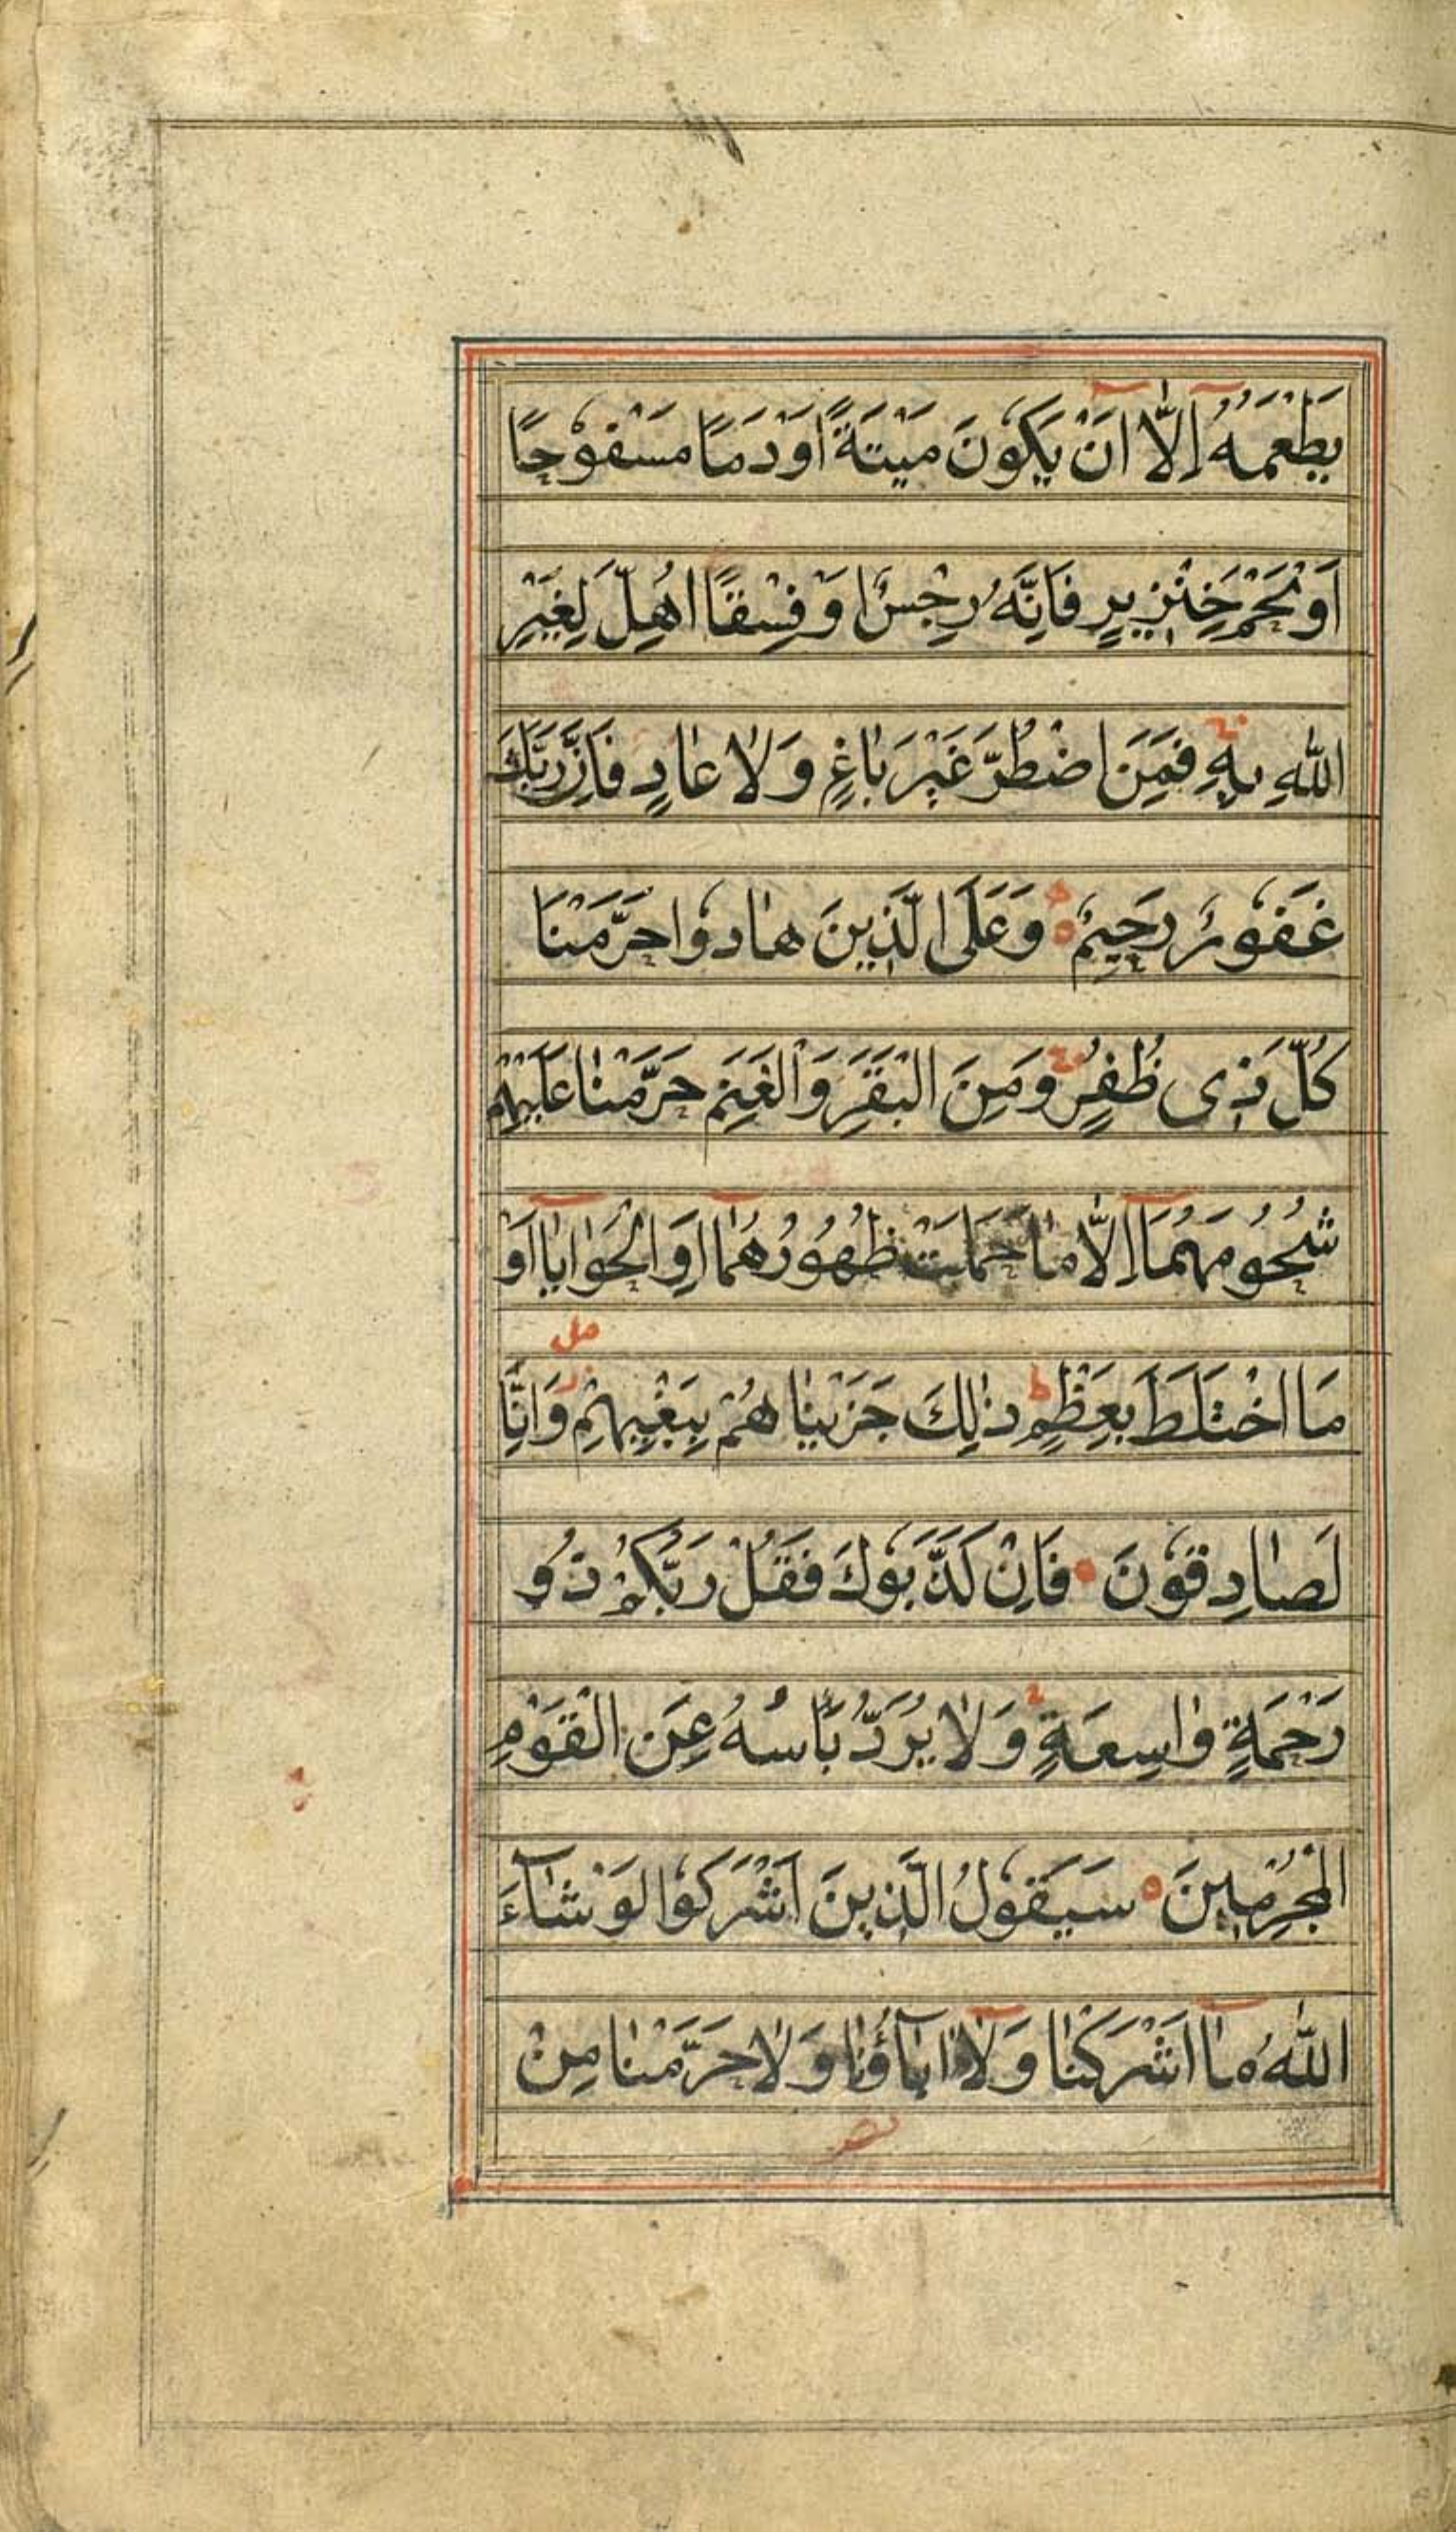 يَطْعَمُهُ اِلَّا اَنْ يَكُونَ مَيْتَةً اَوْ دَمًا مَسْفُوحًا
اَوْ لَحْمَ خِنْزِيرٍ فَاِنَّهُ رِجْسٌ اَوْ فِسْقًا اُهِلَّ لِغَيْرِ
اللّٰهِ بِهِ فَمَنِ اضْطُرَّ غَيْرَ بَاغٍ وَلَا عَادٍ فَاِنَّ رَبَّكَ
غَفُورٌ رَحِيمٌ وَعَلَى الَّذِينَ هَادُوا حَرَّمْنَا
كُلَّ ذِى ظُفُرٍ وَمِنَ الْبَقَرِ وَالْغَنَمِ حَرَّمْنَا عَلَيْهِمْ
شُحُومَهُمَا اِلَّا مَا حَمَلَتْ ظُهُورُهُمَا اَوِ الْحَوَايَا اَوْ
مل
مَا اخْتَلَطَ بِعَظْمٍ ذٰلِكَ جَزَيْنَاهُمْ بِبَغْيِهِمْ وَاِنَّا
لَصَادِقُونَ فَاِنْ كَذَّبُوكَ فَقُلْ رَبُّكُمْ ذُو
رَحْمَةٍ وَاسِعَةٍ وَلَا يُرَدُّ بَأْسُهُ عَنِ الْقَوْمِ
الْمُجْرِمِينَ سَيَقُولُ الَّذِينَ اَشْرَكُوا لَوْ شَآءَ
اللّٰهُ مَا اَشْرَكْنَا وَلَا اٰبَاؤُنَا وَلَا حَرَّمْنَا مِنْ